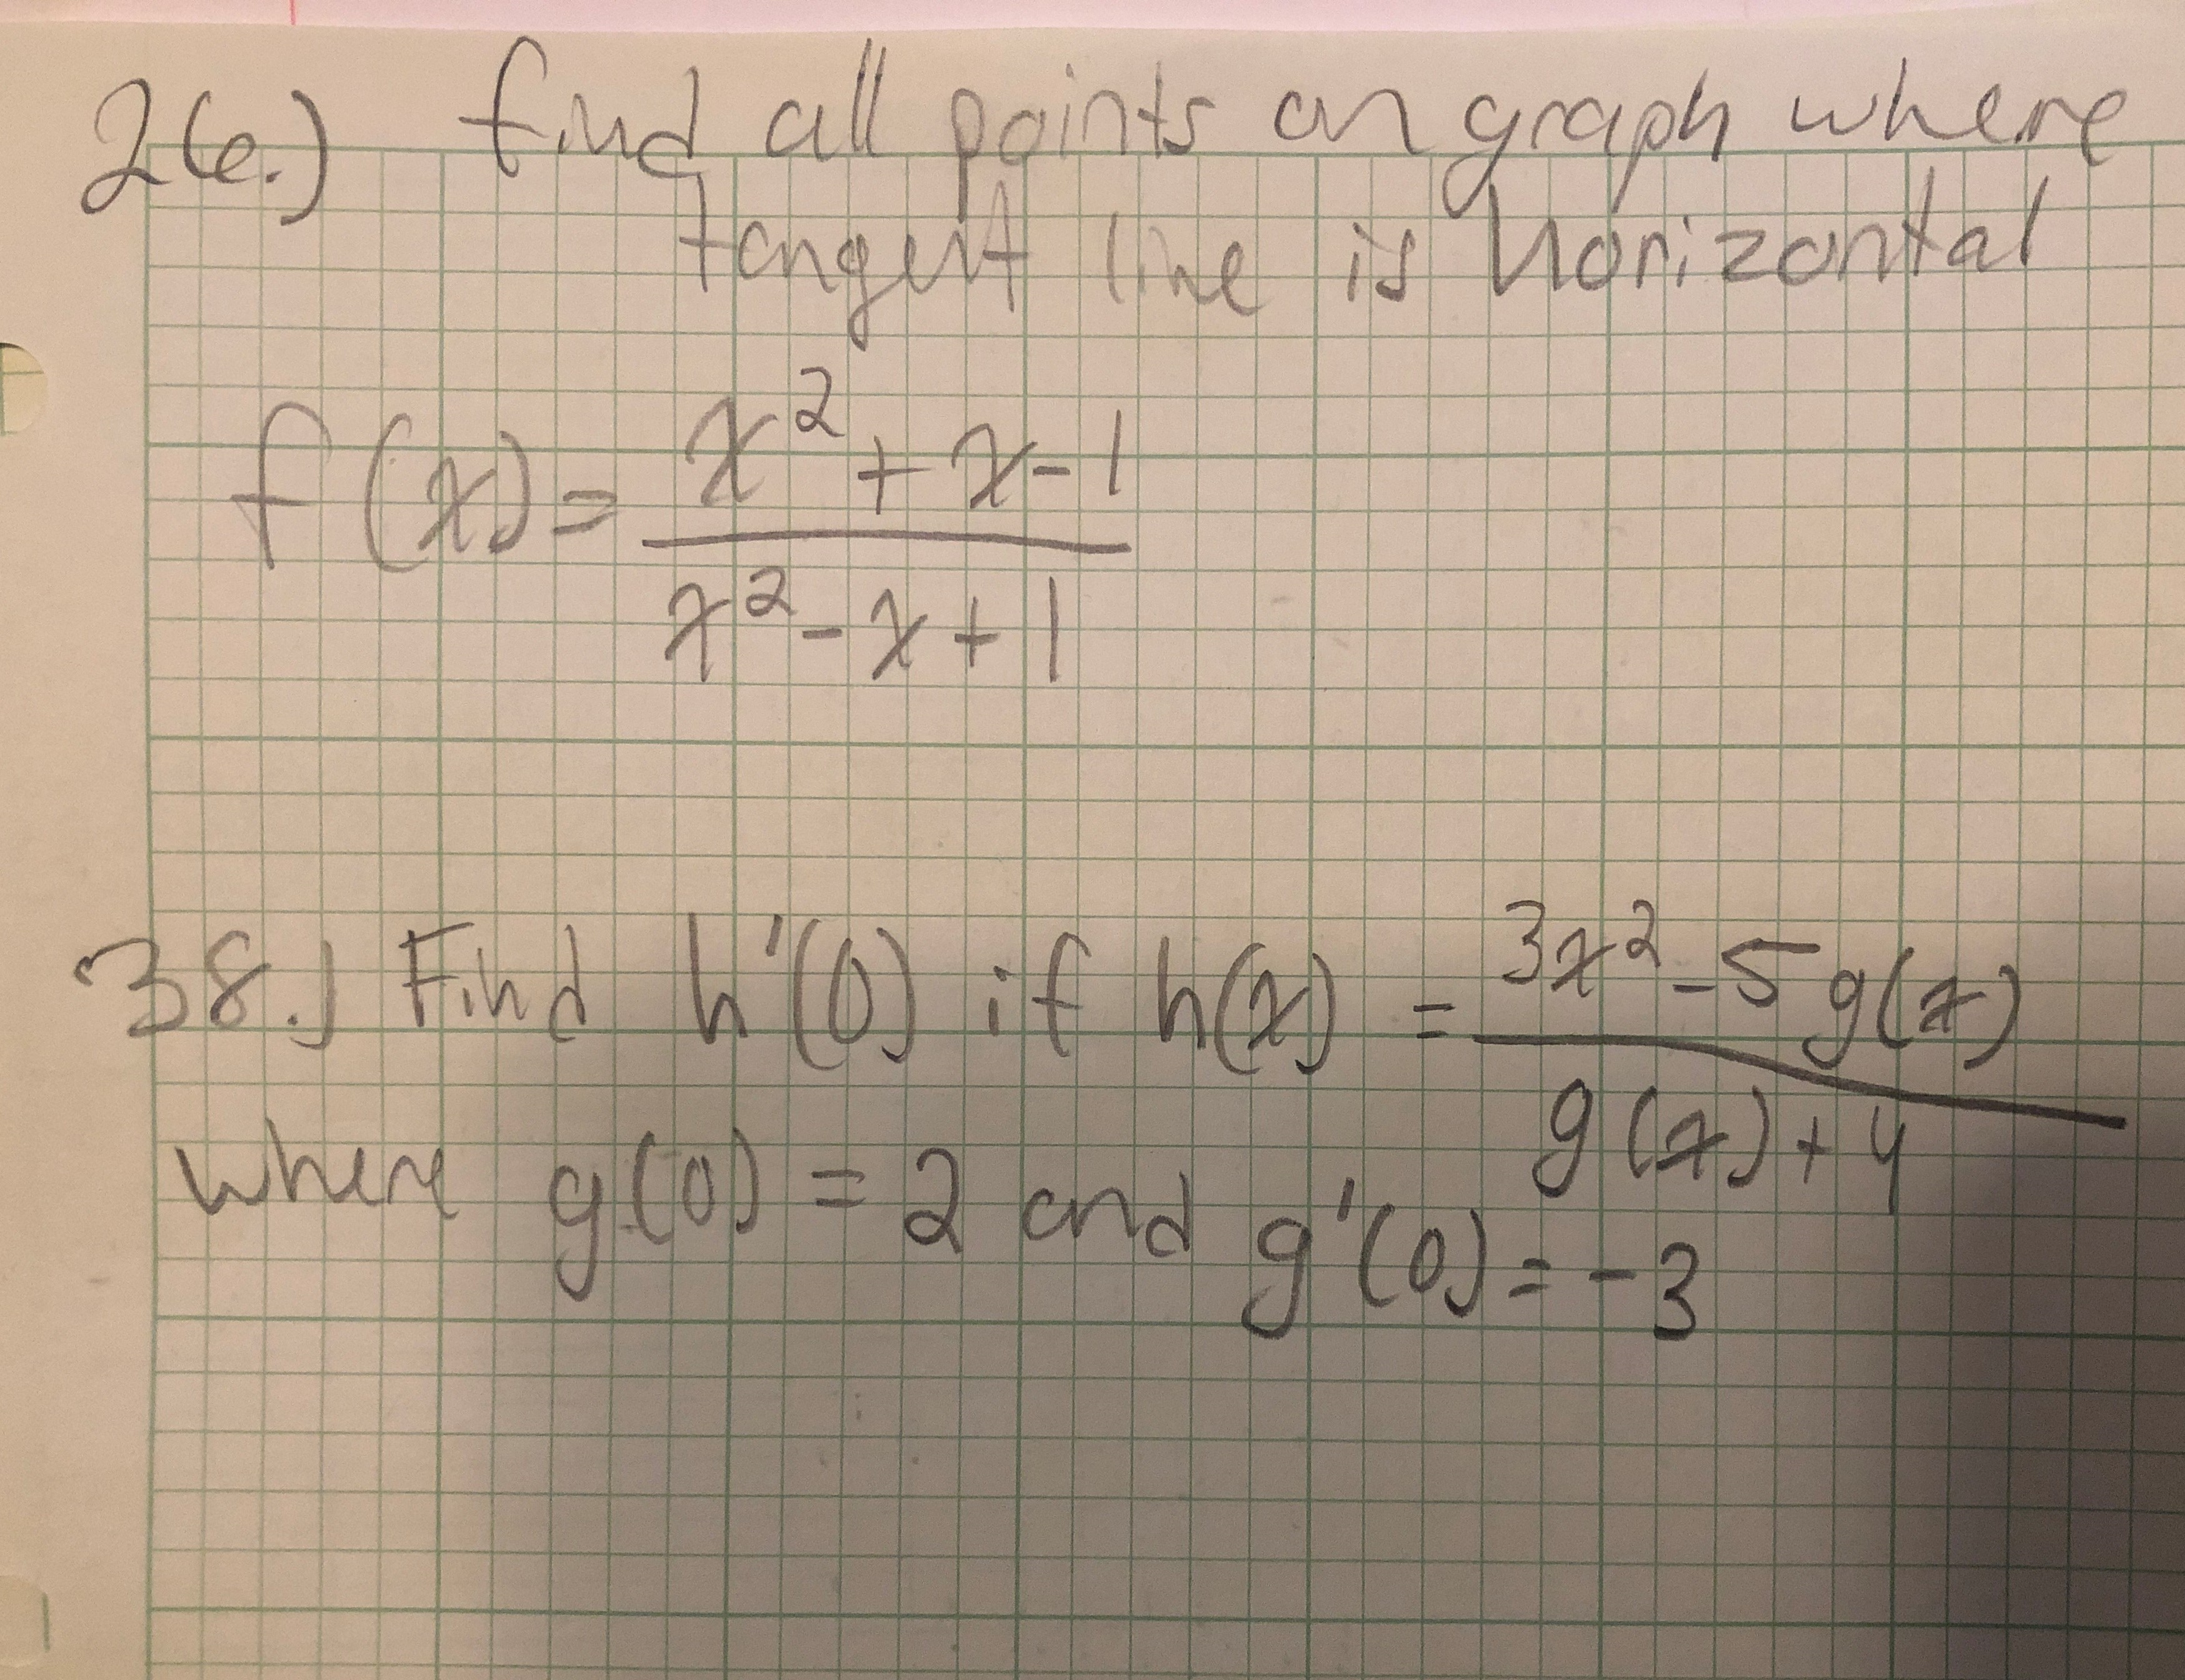 26.) find all points on graph where
tangent line is horizontal
f(x) = \frac{x^2 + x - 1}{x^2 - x + 1}
38.) Find h'(0) if h(x) = \frac{3x^2 - 5g(x)}{g(x) + 4}
where g(0) = 2 and g'(0) = -3